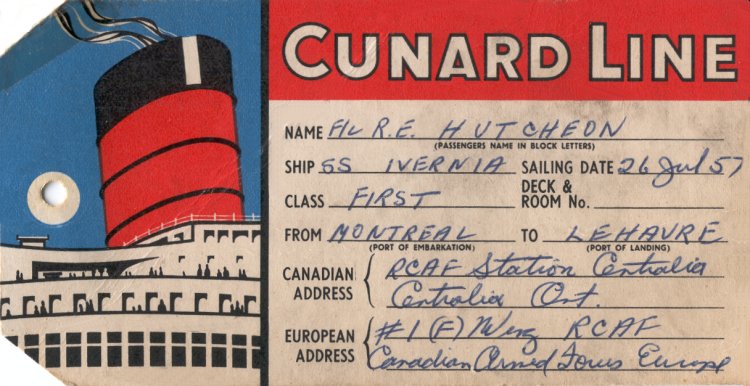 CUNARD LINE
NAME F/L R.E. HUTCHEON
(PASSENGERS NAME IN BLOCK LETTERS)
SHIP SS IVERNIA SAILING DATE 26 Jul 57
CLASS FIRST DECK & ROOM No.
FROM MONTREAL TO LEHAVRE
(PORT OF EMBARKATION) (PORT OF LANDING)
CANADIAN ADDRESS RCAF Station Centralia
Centralia Ont.
EUROPEAN ADDRESS #1 (F) Wing RCAF
Canadian Armed Forces Europe